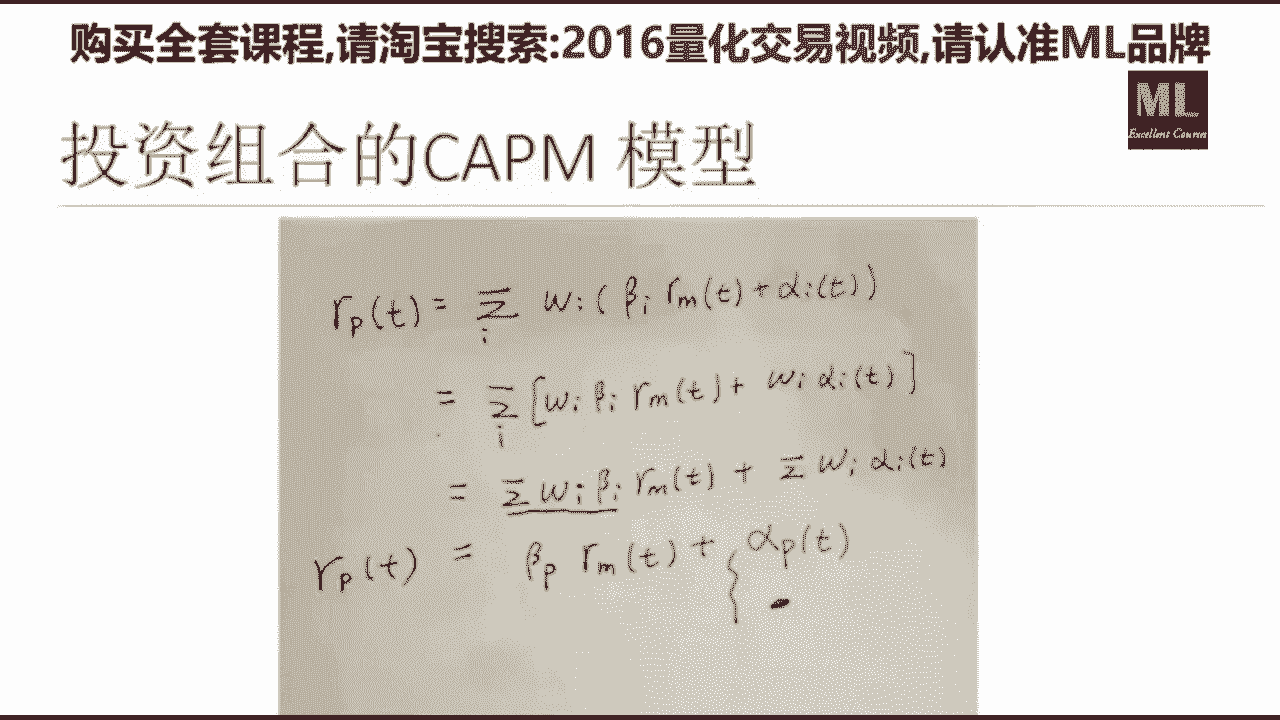 购买全套课程,请淘宝搜索:2016量化交易视频,请认准ML品牌
ML
Excellent Courses
投资组合的CAPM 模型
r_p(t) = Σ_i w_i ( β_i r_m(t) + α_i(t) )
= Σ_i [ w_i β_i r_m(t) + w_i α_i(t) ]
= Σ w_i β_i r_m(t) + Σ w_i α_i(t)
r_p(t) = β_p r_m(t) + { α_p(t)